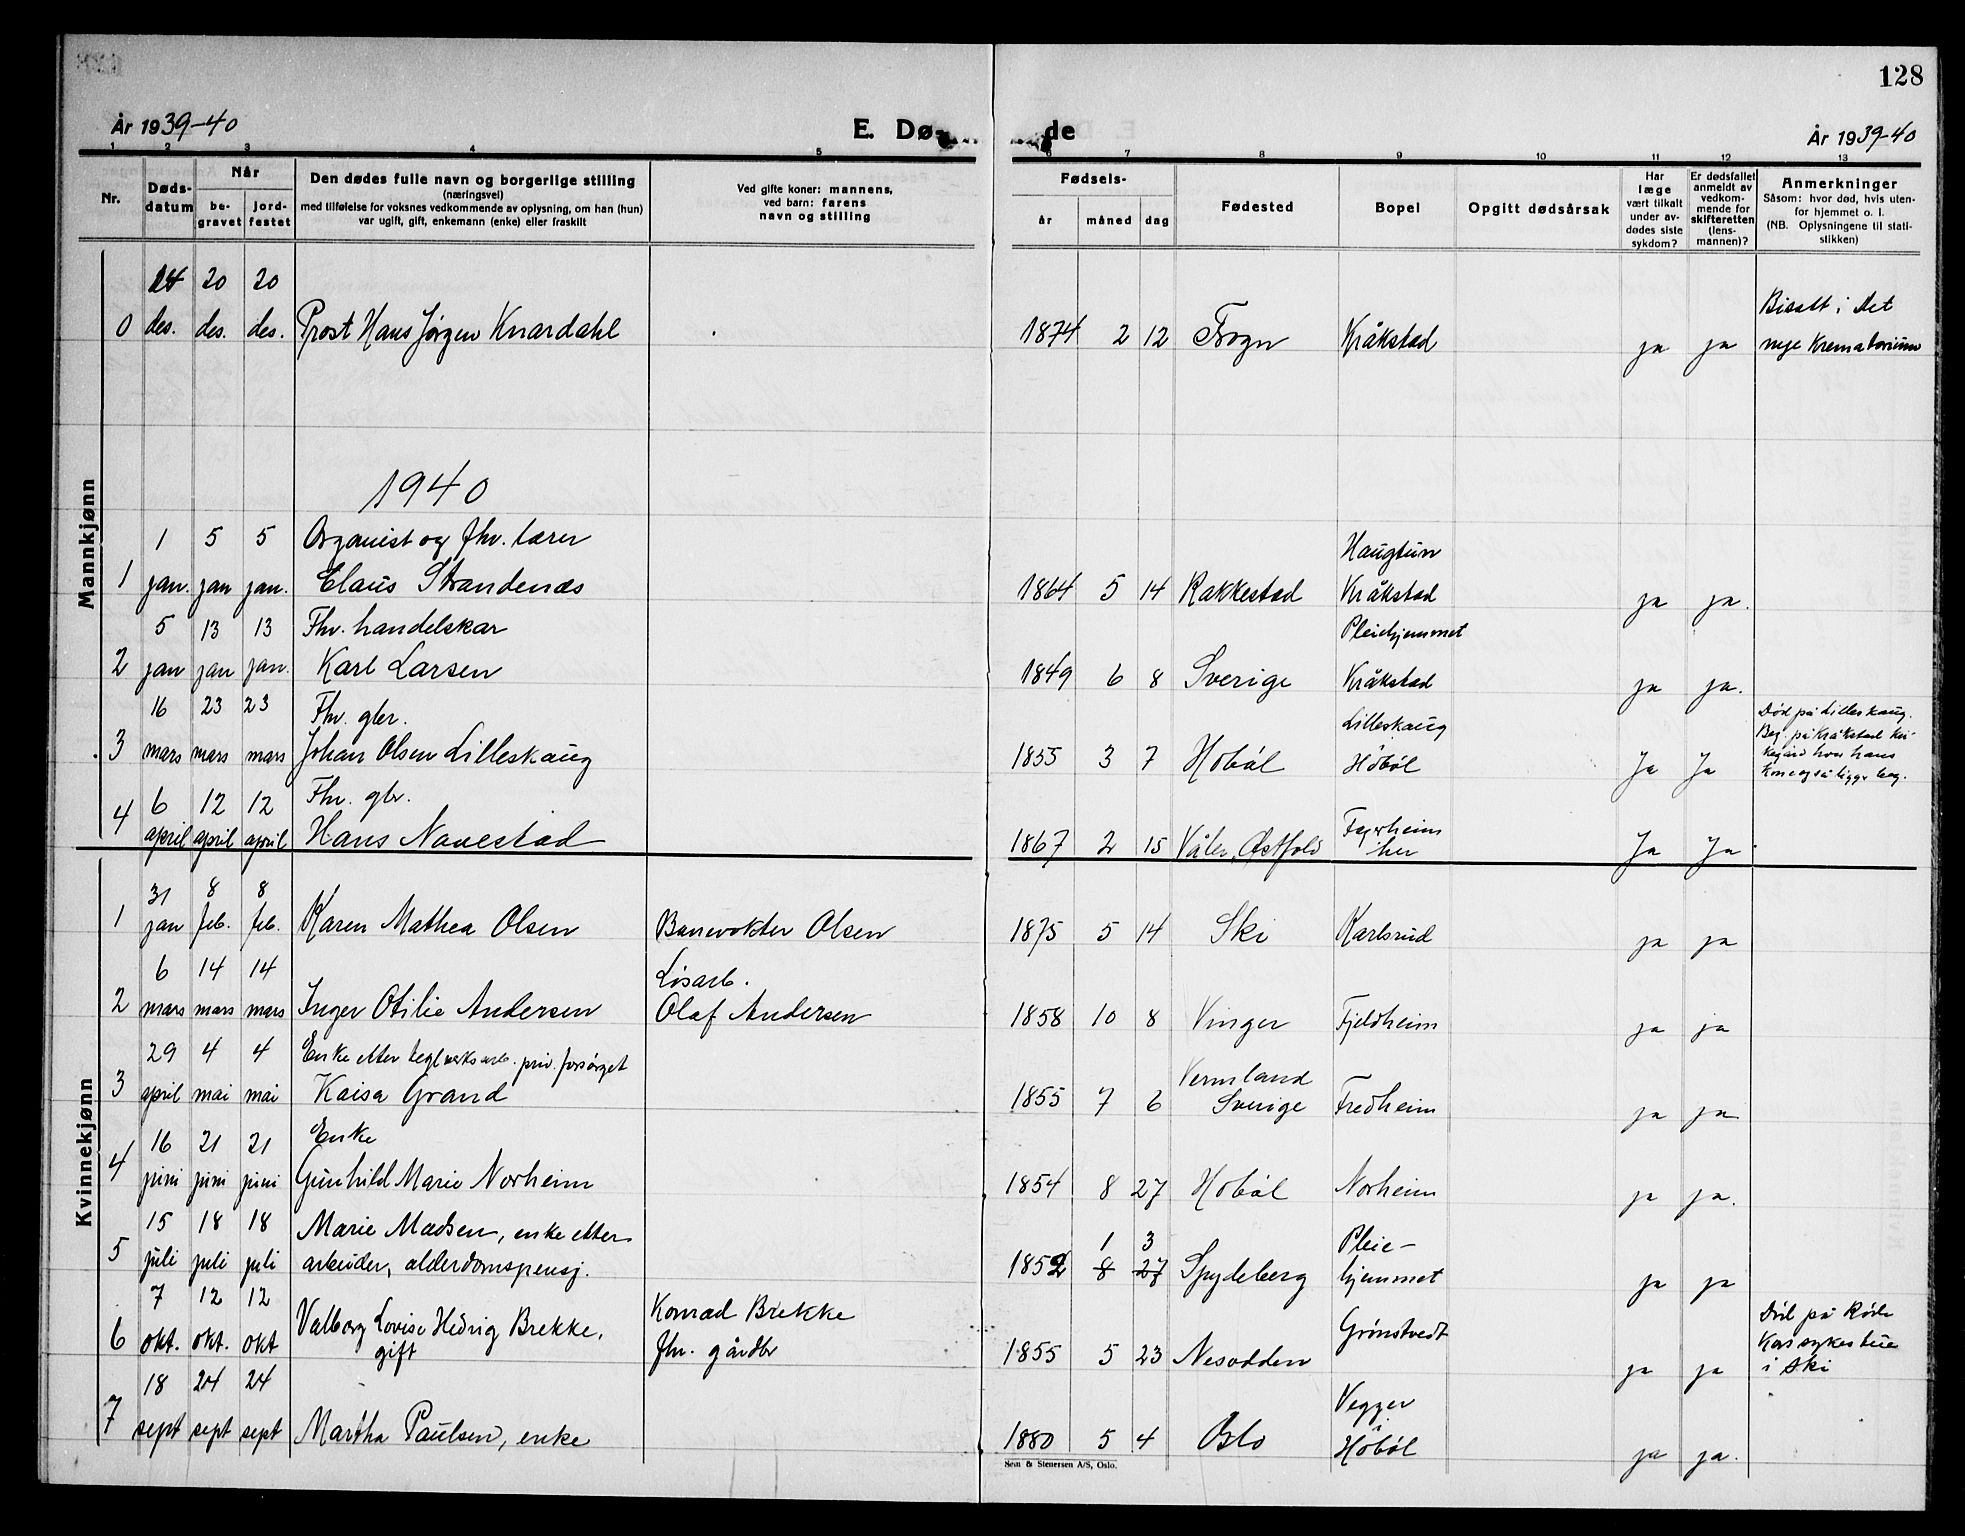 128
År 1939-40
E. Dø
de
År 1939-40
1 2 3 4 5 6 7 8 9 10 11 12 13
Nr.
Døds-
datum
Når
be-
gravet
jord-
festet
Den dødes fulle navn og borgerlige stilling
(næringsvei)
med tilføielse for voksnes vedkommende av oplysning, om han (hun)
var ugift, gift, enkemann (enke) eller fraskilt
Ved gifte koner: mannens,
ved barn: farens
navn og stilling
Fødsels-
år måned dag
Fødested
Bopel
Opgitt dødsårsak
Har
læge
vært tilkalt
under av-
dødes siste
sykdom?
Er dødsfallet
anmeldt av
vedkom-
mende for
skifteretten
(lens-
mannen)?
Anmerkninger
Såsom: hvor død, hvis uten-
for hjemmet o. l.
(NB. Oplysningene til stati-
stikken)
Mannkjønn
14 20 20
0 des. des. des. Prost Hans Jørgen Knardahl 1874 2 12 Frogn Kråkstad ja ja
Bisatt i Det
nye Krematorium
1940
1 5 5 Organist og fhv. lærer Haugtun
1 jan. jan jan. Claus Strandenæs 1864 5 14 Rakkestad Kråkstad ja ja.
5 13 13 Fhv. handelskar Pleiehjemmet
2 jan jan jan. Karl Larsen 1849 6 8 Sverige Kråkstad ja ja.
16 23 23 Fhv. gbr. Lilleskaug
3 mars mars mars Johan Olsen Lilleskaug 1855 3 7 Hobøl Hobøl Ja Ja
Død på Lilleskaug.
Beg. på Kråkstad kir-
kegård hvor hans
kone også ligger beg.
6 12 12 Fhv. gbr. Fagerheim
4 april april april Hans Navestad 1867 2 15 Våler, Østfold her Ja Ja.
Kvinnekjønn
31 8 8
1 jan feb. feb. Karen Mathea Olsen Banevokter Olsen 1875 5 14 Ski Karlsrud ja ja
6 14 14 Løsarb.
2 mars mars mars Inger Otilie Andersen Olaf Andersen 1858 10 8 Vinger Fjeldheim ja ja
29 4 4 Enke etter teglverksarb. priv. forsørget Vermland
3 april mai mai Kaisa Grand 1855 7 6 Sverige Fredheim ja ja
16 21 21 Enke
4 juni juni juni Gunhild Marie Norheim 1854 8 27 Hobøl Norheim ja ja.
15 18 18 Marie Madsen, enke etter 1 3 Pleie-
5 juli juli juli arbeider, alderdomspensj. 1852 8 27 Spydeberg hjemmet ja ja
7 12 12 Valborg Lovise Hedvig Brekke, Konrad Brekke Grønstvedt
6 okt. okt. okt gift fhv. gårdbr 1855 5 23 Nesodden ja ja
Død på Røde
Kors sykestue
i Ski
18 24 24 Vegger
i
7 sept sept sept Martha Paulsen, enke 1880 5 4 Oslo Hobøl ja ja.
Sem & Stenersen A/S, Oslo.